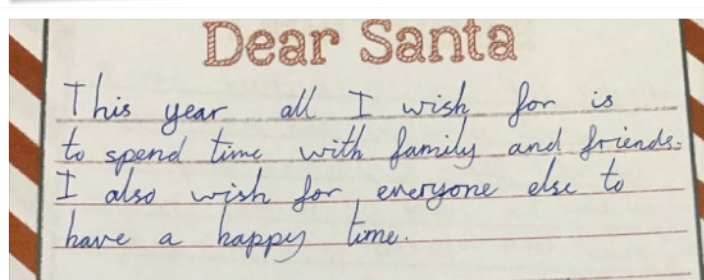 Dear Santa
This year all I wish for is
to spend time with family and friends.
I also wish for everyone else to
have a happy time.